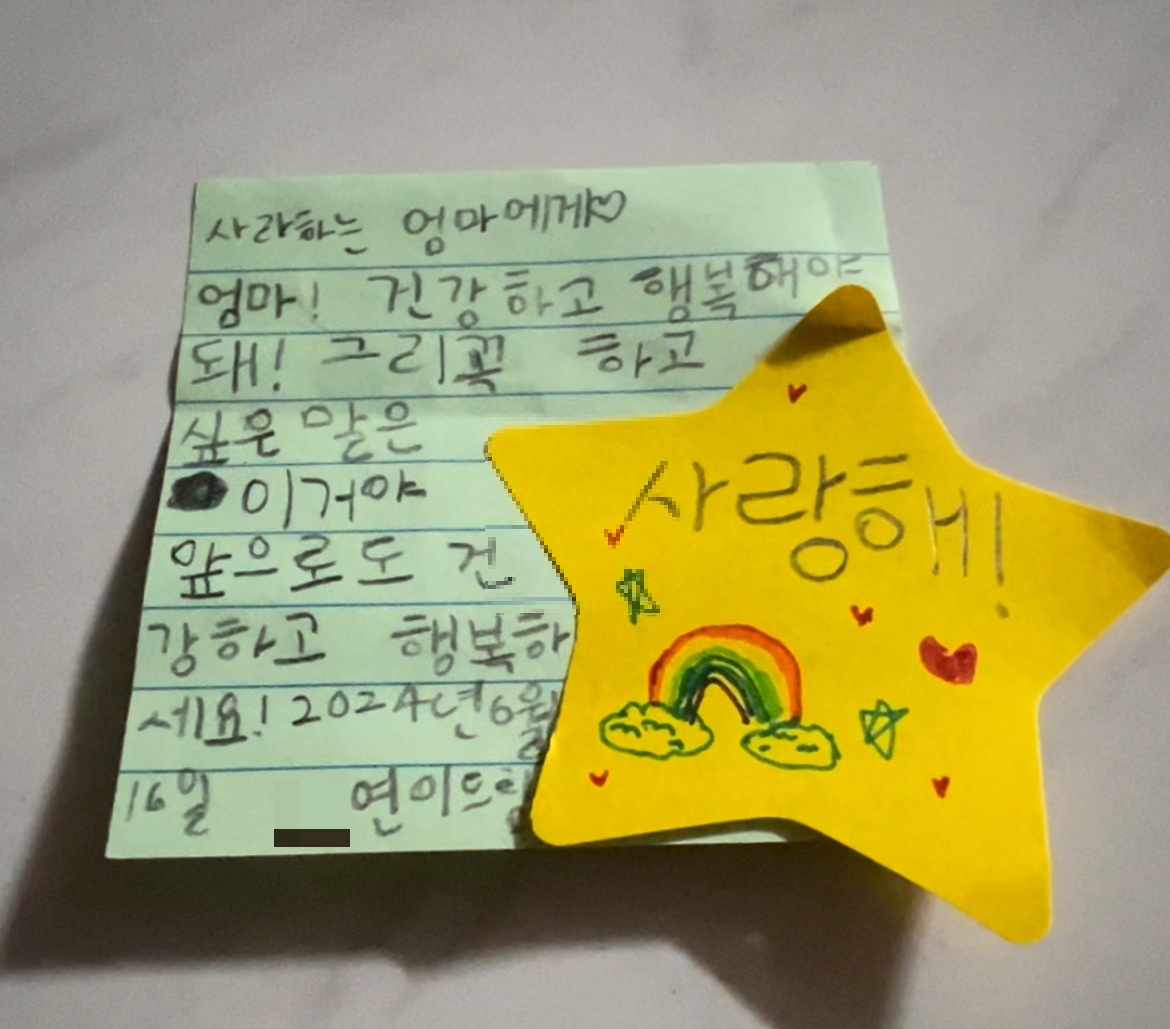 사랑하는 엄마에게♡
엄마! 건강하고 행복해야
돼! 그리꼭 하고
싶은 말은
이거야
앞으로도 건
강하고 행복하
세요! 2024년 6월
16일 연이
사랑해!